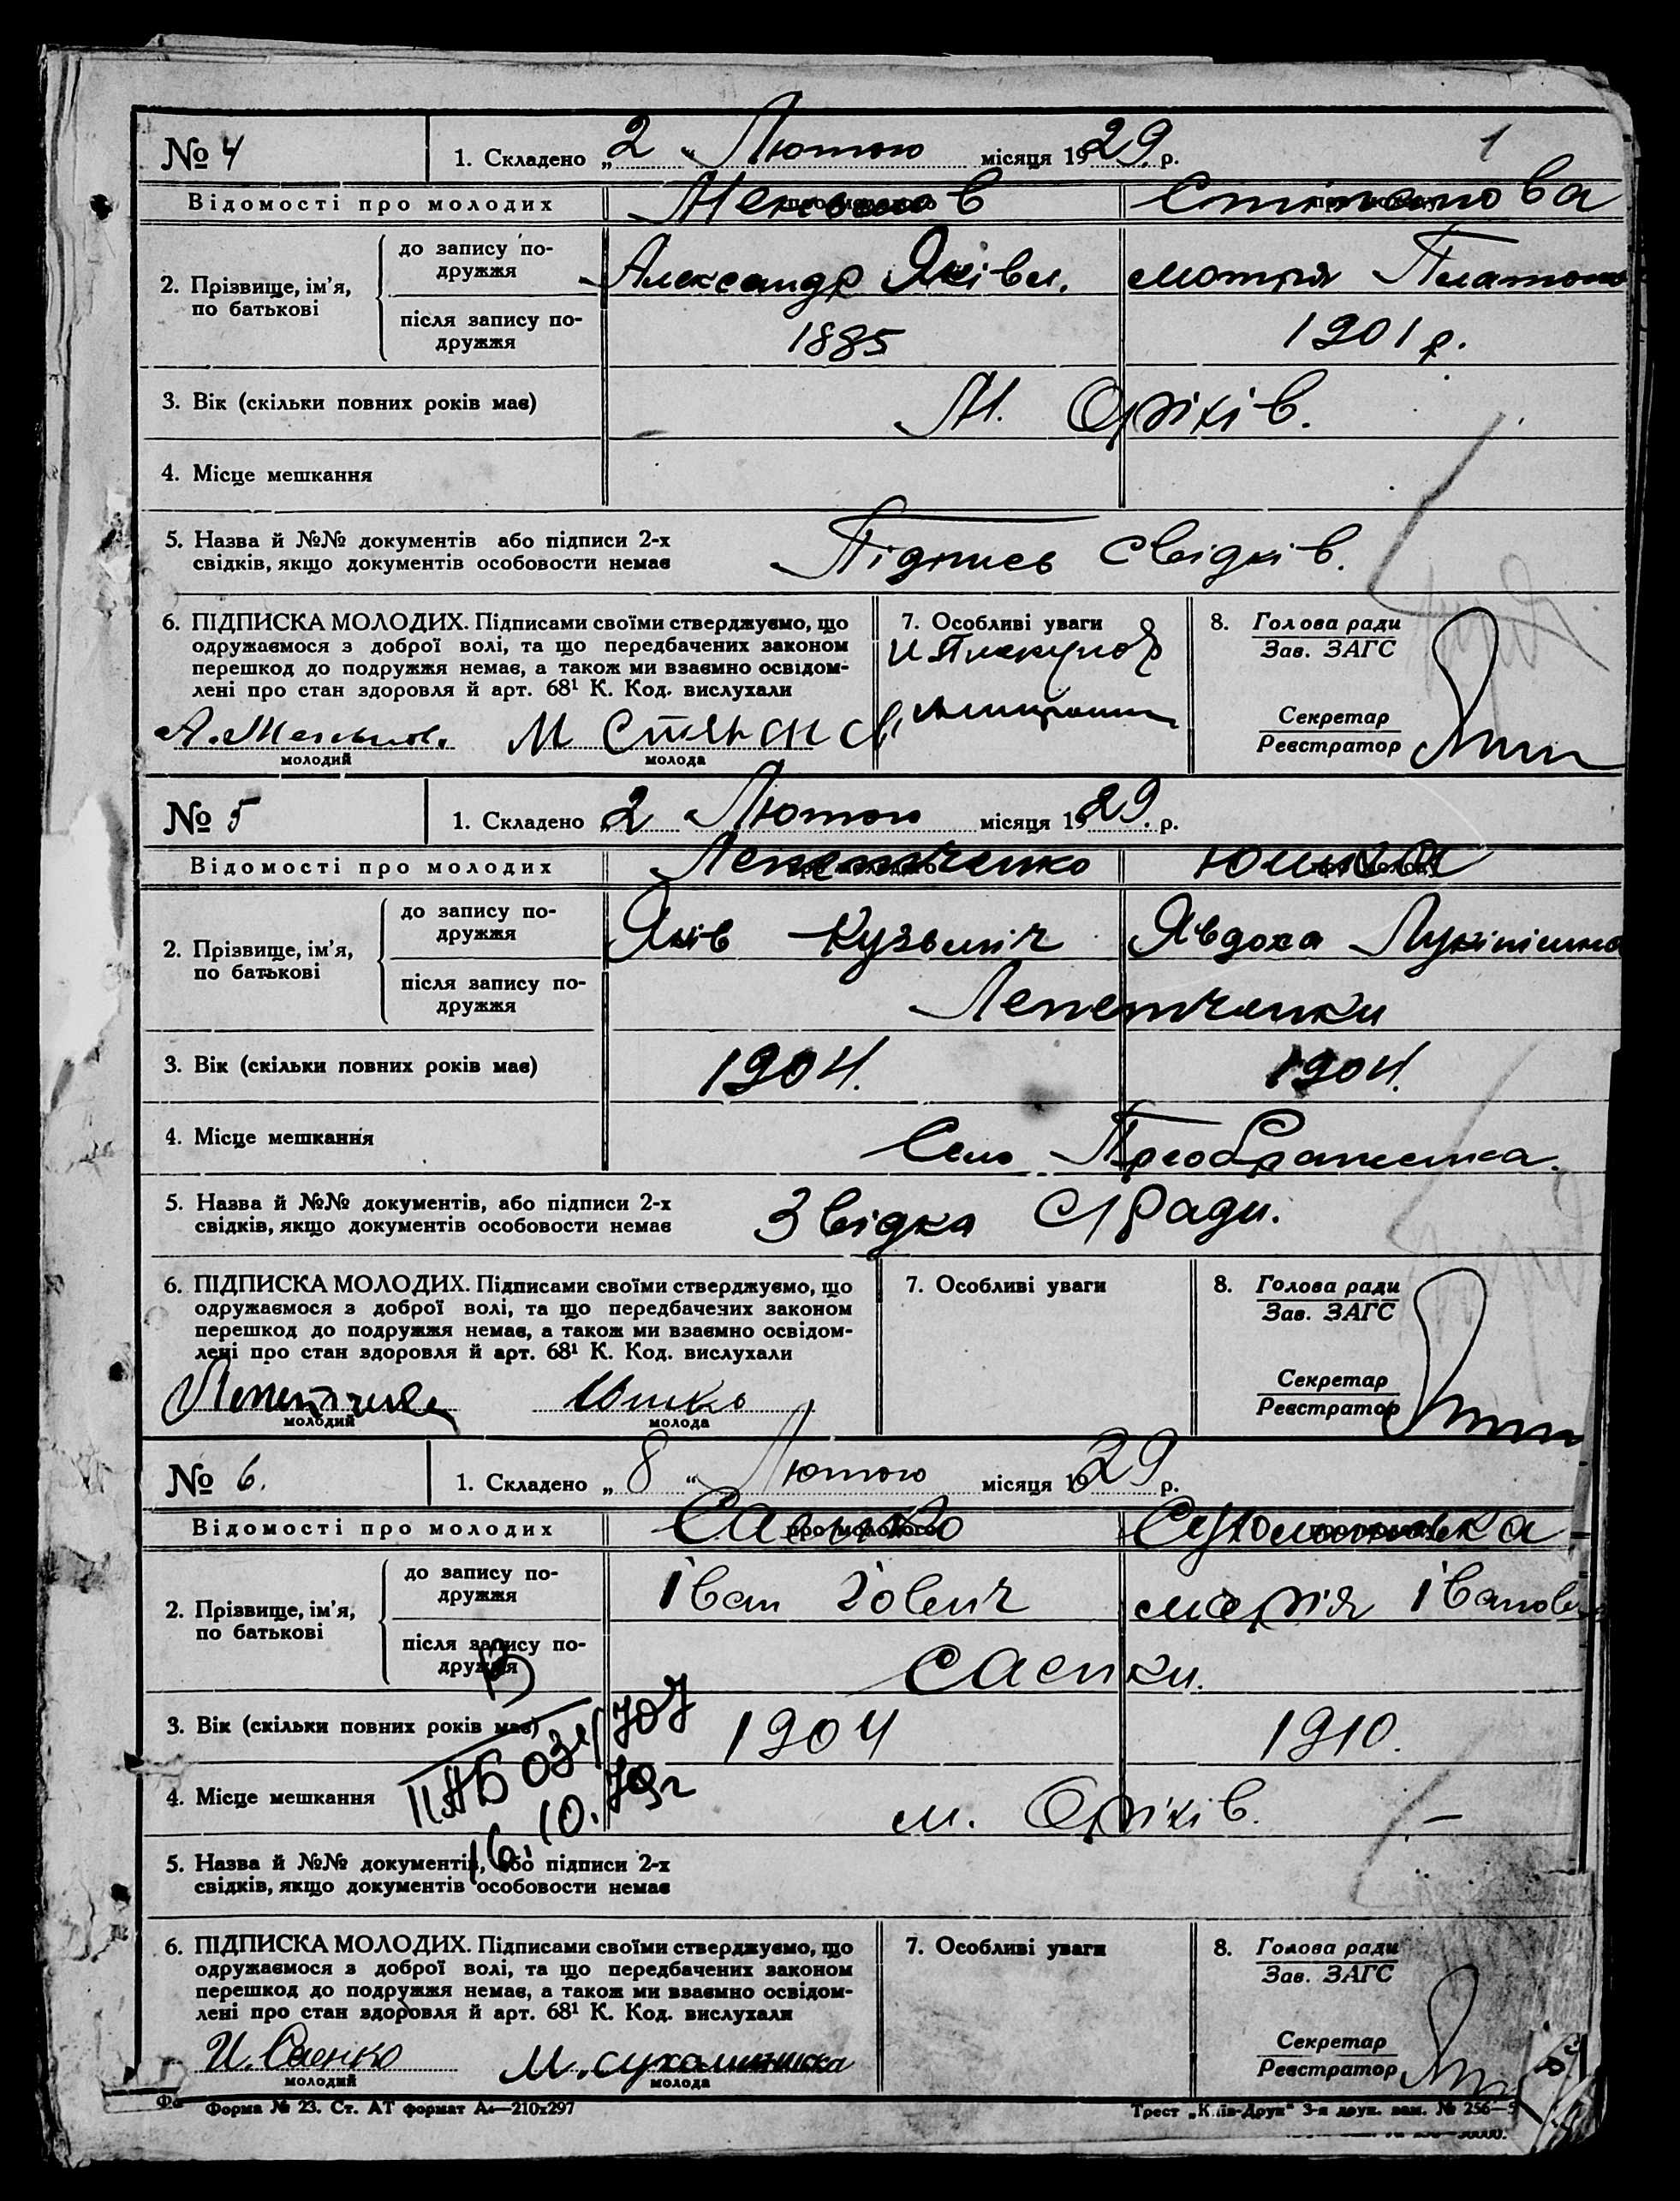 1
№ 4 1. Складено „2“ Лютого місяця 1929 р.
Відомості про молодих
2. Прізвище, ім’я, по батькові
до запису по-
дружжя
Александр Яківл. Мотря Платоно
після запису по-
дружжя
1885 1901 р.
3. Вік (скільки повних років має)
М. Оріхів.
4. Місце мешкання
5. Назва й №№ документів або підписи 2-х
свідків, якщо документів особовости немає
Підписъ свідків.
6. ПІДПИСКА МОЛОДИХ. Підписами своїми стверджуємо, що
одружаємося з доброї волі, та що передбачених законом
перешкод до подружжя немає, а також ми взаємно освідом-
лені про стан здоровля й арт. 68¹ К. Код. вислухали
молодий молода
7. Особливі уваги
8. Голова ради
Зав. ЗАГС
Секретар
Реєстратор
№ 5 1. Складено „2 Лютого місяця 1929. р.
Відомості про молодих Лепетченко Юшка
2. Прізвище, ім’я,
по батькові
до запису по-
дружжя
Яків Кузьмич Явдоха
після запису по-
дружжя
Лепетченки
3. Вік (скільки повних років має) 1904. 1904.
4. Місце мешкання Село Преображенка.
5. Назва й №№ документів, або підписи 2-х
свідків, якщо документів особовости немає
Звідка С/Ради.
6. ПІДПИСКА МОЛОДИХ. Підписами своїми стверджуємо, що
одружаємося з доброї волі, та що передбачених законом
перешкод до подружжя немає, а також ми взаємно освідом-
лені про стан здоровля й арт. 68¹ К. Код. вислухали
молодий молода
7. Особливі уваги
8. Голова ради
Зав. ЗАГС
Секретар
Реєстратор
№ 6. 1. Складено „8“ Лютого місяця 1929 р.
Відомості про молодих Саенко
2. Прізвище, ім’я,
по батькові
до запису по-
дружжя
Іван Марія Іванов
після запису по-
дружжя
Саенки.
3. Вік (скільки повних років має) 1904 1910.
4. Місце мешкання м. Оріхів.
5. Назва й №№ документів, або підписи 2-х
свідків, якщо документів особовости немає
6. ПІДПИСКА МОЛОДИХ. Підписами своїми стверджуємо, що
одружаємося з доброї волі, та що передбачених законом
перешкод до подружжя немає, а також ми взаємно освідом-
лені про стан здоровля й арт. 68¹ К. Код. вислухали
И. Саенко М. Сухомлинська
молодий молода
7. Особливі уваги
8. Голова ради
Зав. ЗАГС
Секретар
Реєстратор
Форма № 23. Ст. АТ формат А₄—210х297
Трест „Київ-Друк“ 3-я друк. зам. № 256—5